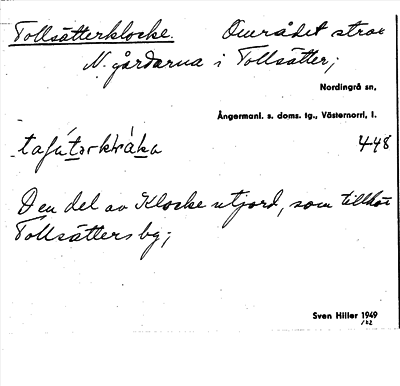 Tollsätterklocke. Området strax
N. gårdarna i Tollsätter;
Nordingrå sn,
Ångermanl. s. doms. tg., Västernorrl. l.
448
Den del av Klocke utjord, som tillhör
Tollsätters by;
Sven Hiller 1949